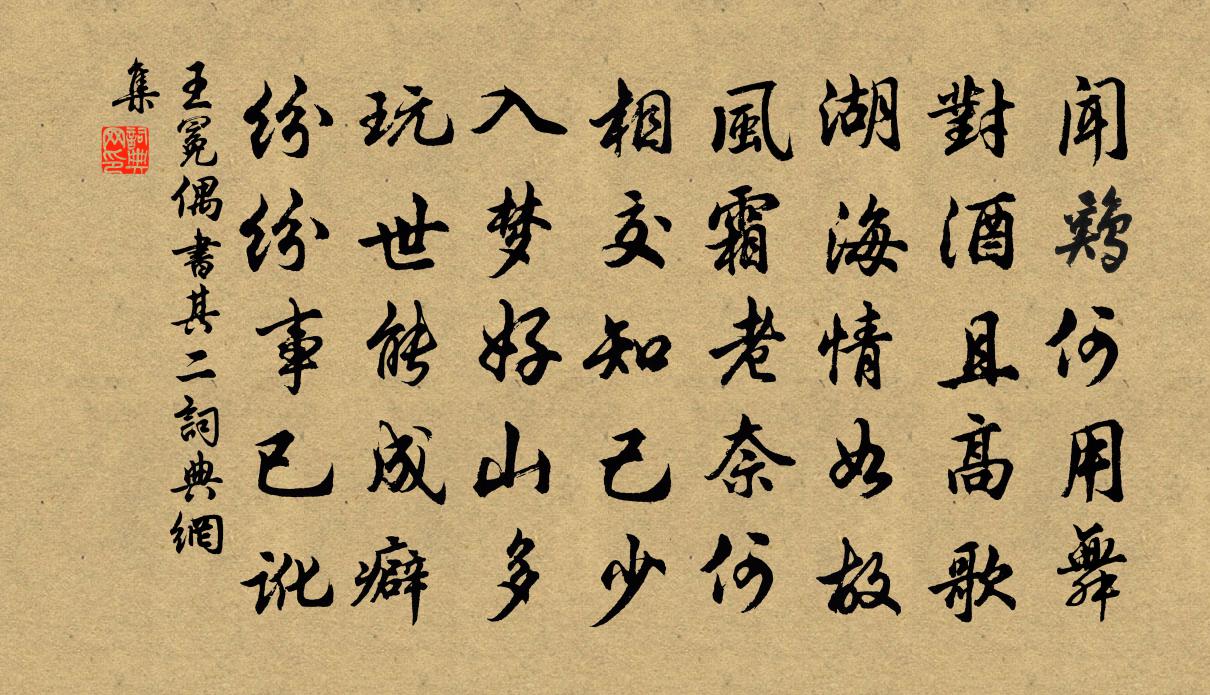 闻鷄何用舞
對酒且高歌
湖海情如故
風霜老奈何
相交知己少
入梦好山多
玩世能成癖
纷纷事已訛
王冕偶書其二詞典網
集
詞典
网印